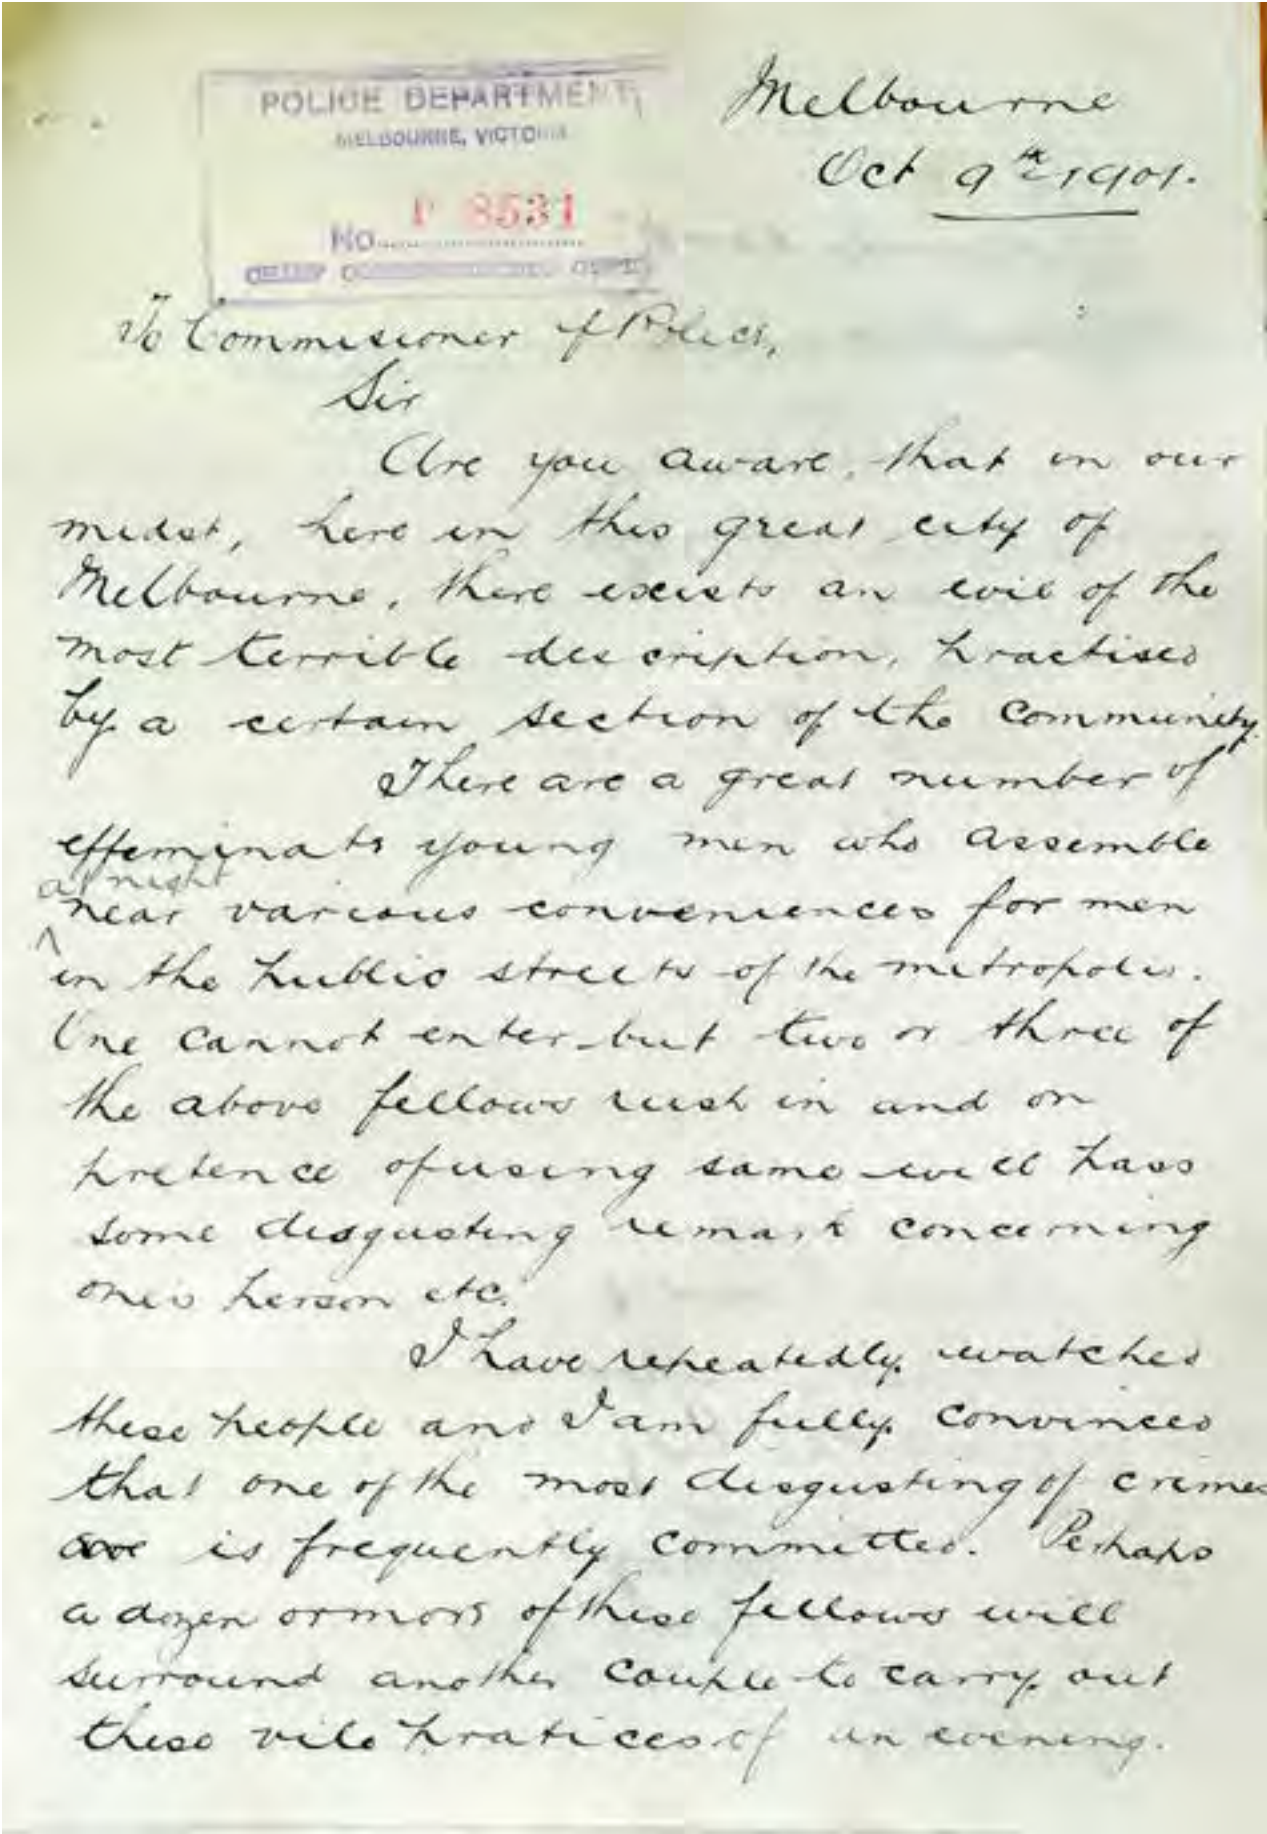 POLICE DEPARTMENT,
MELBOURNE, VICTORIA
No. P 8531
CHIEF COMMISSIONER'S OFFICE
Melbourne
Oct 9th 1901.
To Commisioner of Police,
Sir
Are you aware, that in our
midst, here in this great city of
Melbourne, there exists an evil of the
most terrible description, practised
by a certain section of the community.
There are a great number of
effeminate young men who assemble
at night
near various conveniences for men
in the public streets of the metropolis.
One cannot enter but two or three of
the above fellows rush in and on
pretence of using same will pass
some disgusting remark concerning
one's person etc.
I have repeatedly watched
these people and I am fully convinced
that one of the most disgusting of crimes
are is frequently committed. Perhaps
a dozen or more of these fellows will
surround another couple to carry out
these vile pratices of an evening.